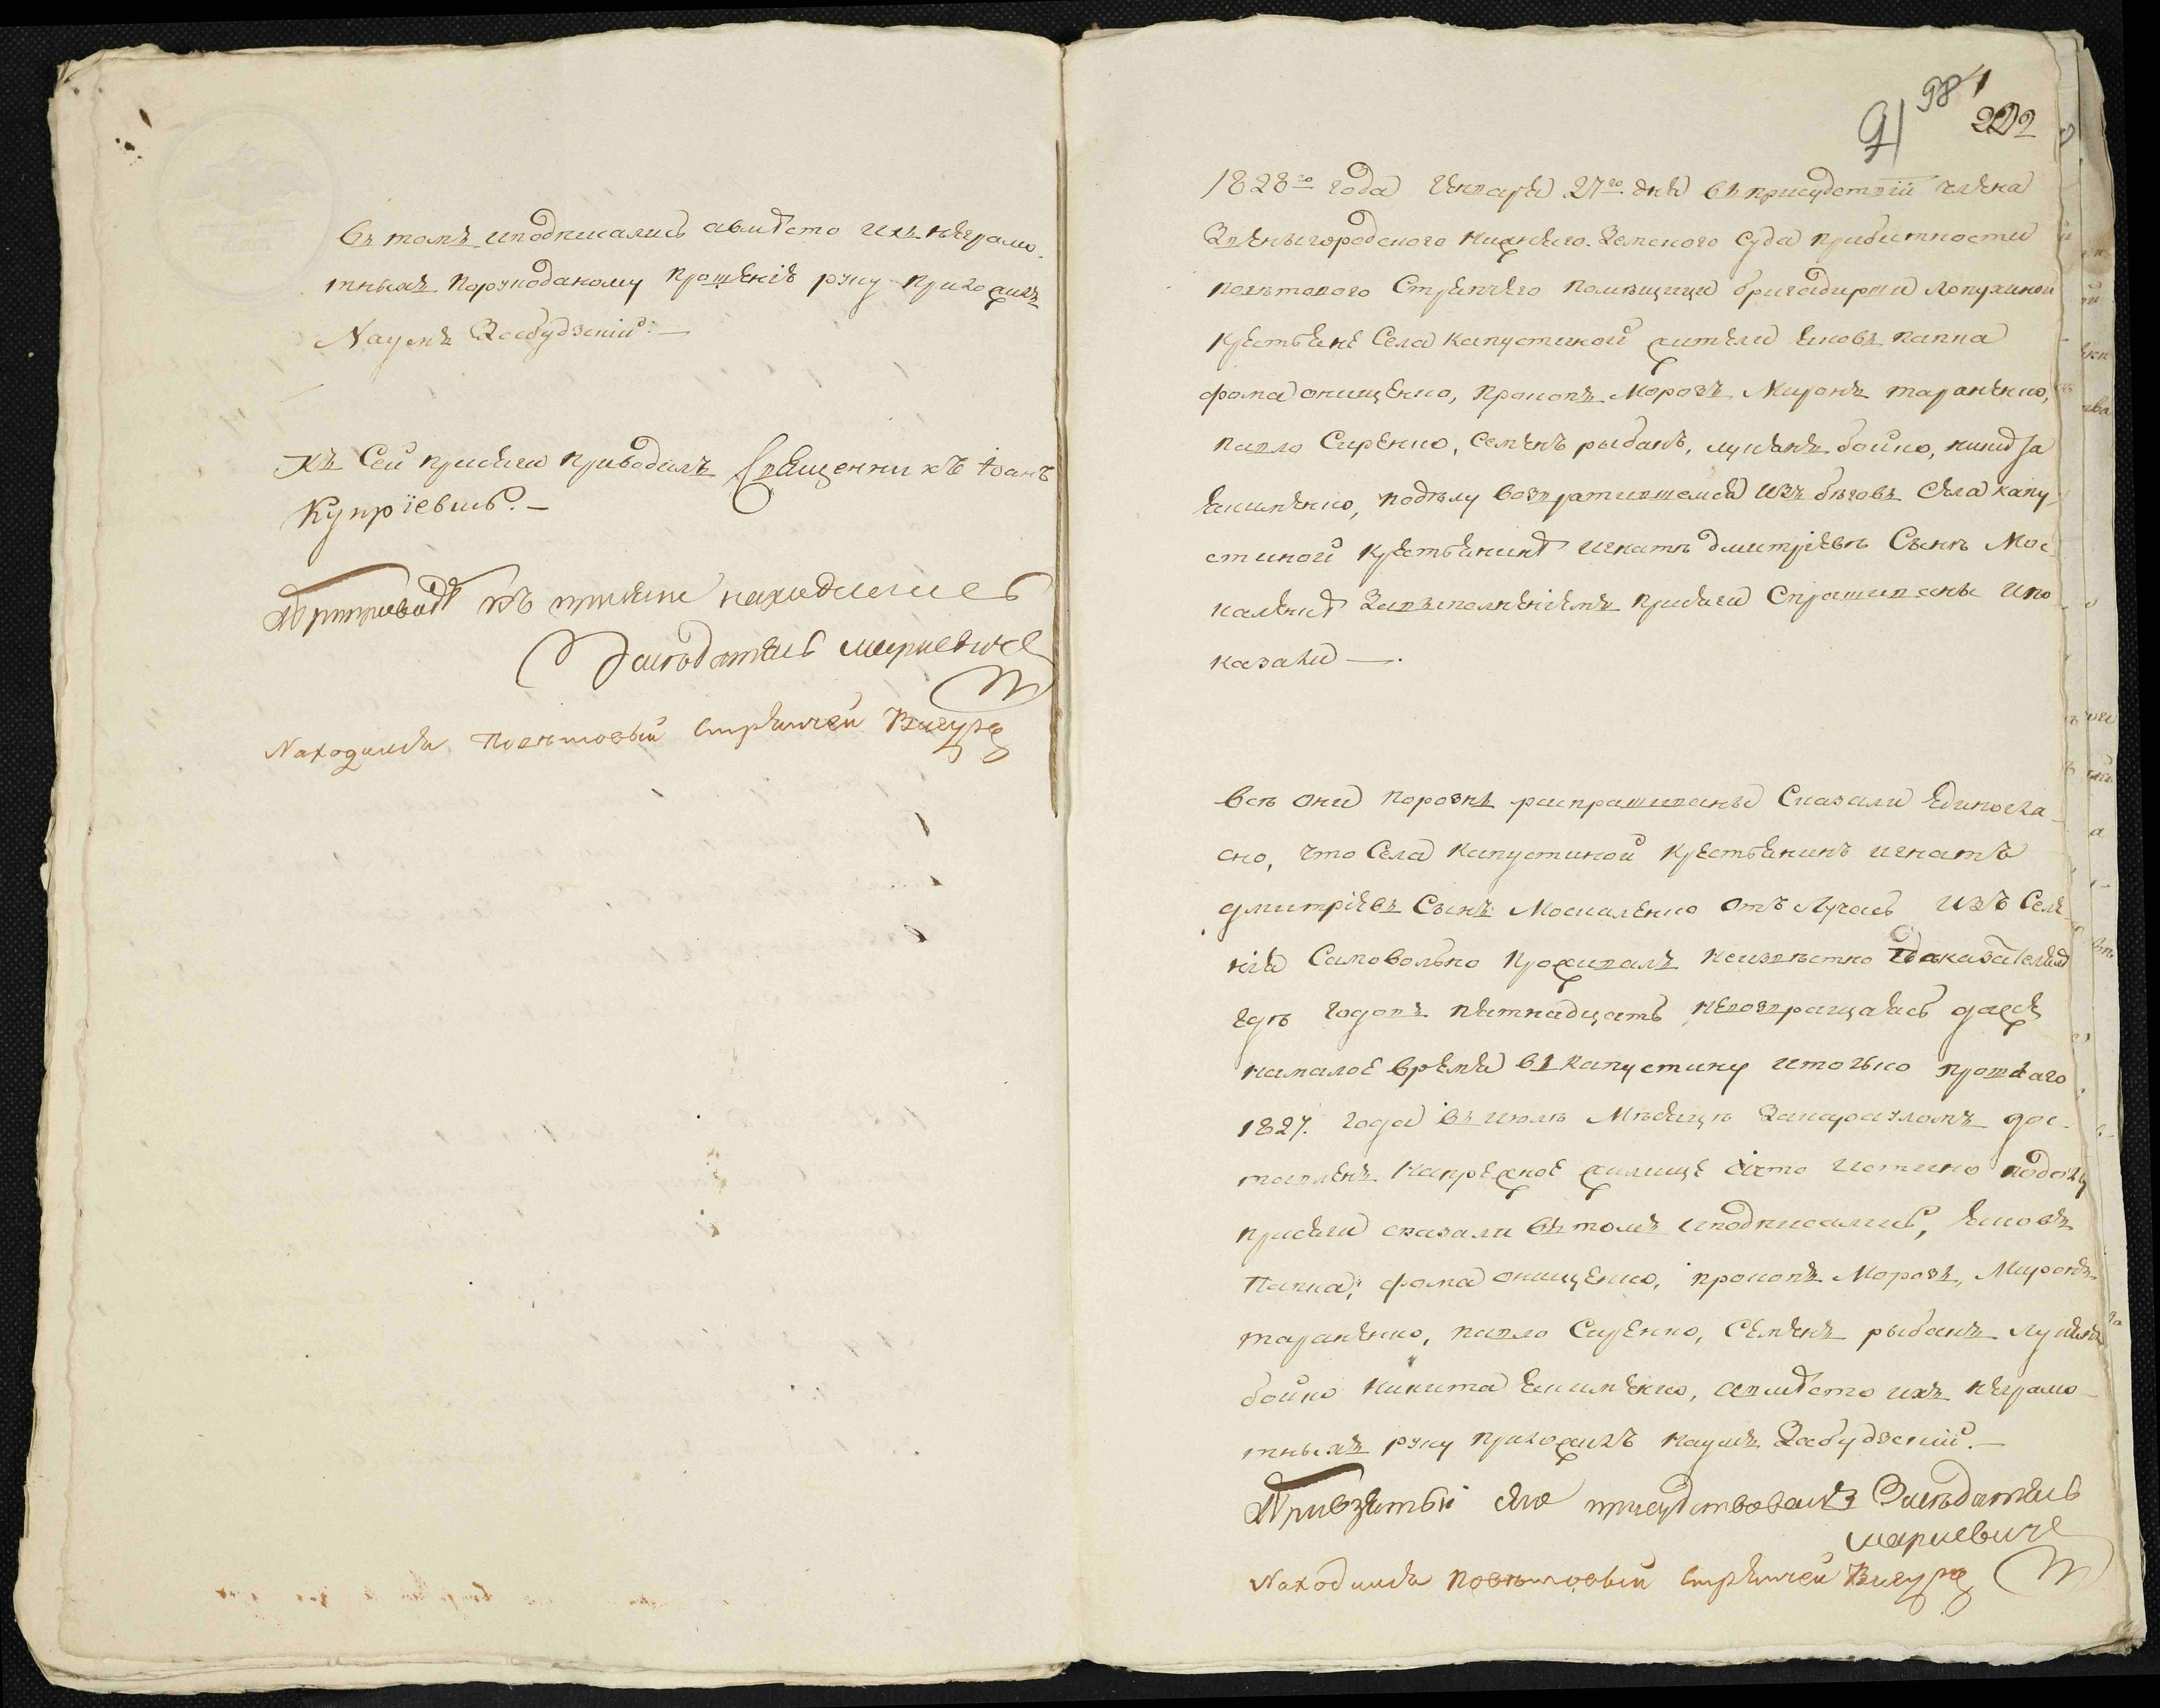 въ томъ иподписались авмѣсто ихъ неграмо-
тныхъ порукоданому прошенію руку приложилъ
Наумъ Забудзскій.—
Къ Сей присяги приводилъ Священникъ Іоанъ
Купріевичъ.—
Приприводѣ къ присяги находился
Засѣдатель Мариевичь
Находился Повѣтовый Стряпчей Вигура
91
98
202
1828го года Генваря 27го дня въ присудствіи члена
Звенигородского нижнего Земского Суда прибитности
повѣтового Стряпчего помѣщици бригадирши лопухиной
крестьяне Села капустиной жители яковъ папка
фома онищенко, прокопъ морозъ миронъ тараненко,
павло Сиренко, Семенъ рыбакъ, лукянъ бойко, никита
якименко, подѣлу возвратившемся изъ бѣговъ села капу-
стиной крестьянинѣ игнатѣ дмитріевѣ Сынѣ Мос-
каленкѣ Завыполненіемъ присяги Спрашиваны ипо
казали —.
всѣ они порознь распрашиваны Сказали единогла-
сно, что Села капустиной крестьянинъ игнатъ
дмитріевъ Сынъ Москаленко отълучась изъ Селе-
нія Самовольно проживалъ неизвѣстно доказателямъ
гдѣ годовъ пятнадцать невозвращаясь даже
намалое время въ капустину итолько прошлаго
1827. года въ июлѣ Мѣсяцѣ Закарауломъ дос-
тавленъ напрежное жилище что истино подолгу
присяги сказали въ томъ иподписались, яковъ
Папка, фома онищенко, прокопъ Морозъ, Миронъ
тараненко, павло Сиренко, Семенъ рыбакъ Лукянъ
бойко никита якименко, авмѣсто ихъ неграмо-
тныхъ руку приложилъ наумъ Забудзскій.—
Привзятьи сего присудствовалъ Засѣдатель
Мариевичь
Находился повѣтовый Стряпчей Вигура